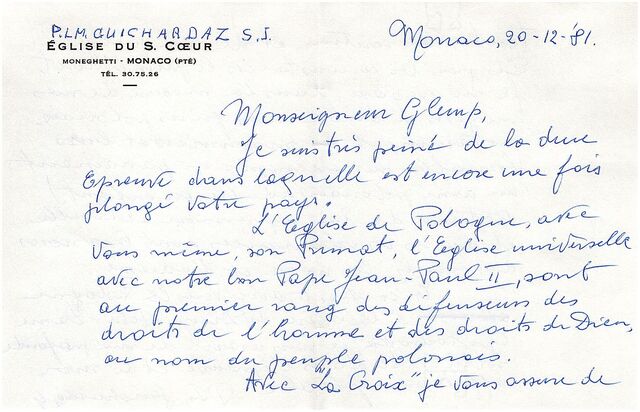 P.L.M. GUICHARDAZ S.J.
ÉGLISE DU S. CŒUR
MONEGHETTI - MONACO (PTÉ)
TÉL. 30.75.26
Monaco, 20-12-'81.
Monseigneur Glemp,
Je suis très peiné de la dure
Epreuve dans laquelle est encore une fois
plongé votre pays.
L'Eglise de Pologne, avec
vous même, son Primat, l'Eglise universelle
avec notre bon Pape Jean-Paul II, sont
au premier rang des défenseurs des
droits de l'homme et des droits de Dieu,
au nom du peuple polonais.
Avec "La Croix" je vous assure de